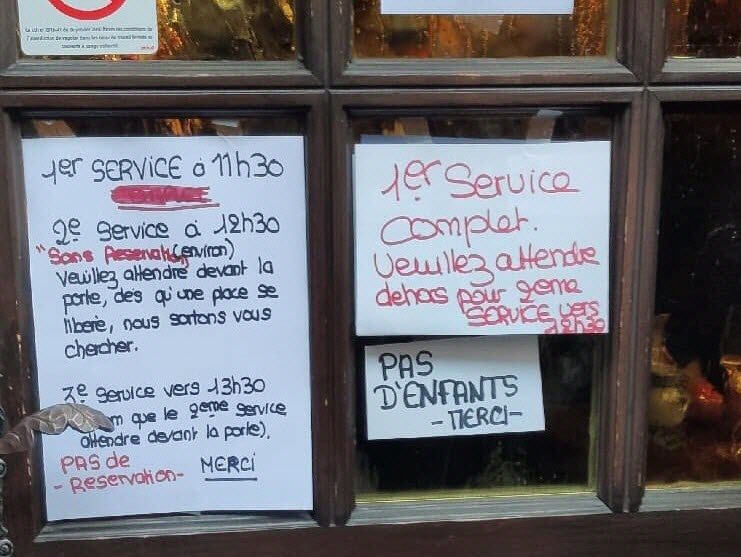 1er SERVICE à 11h30
2e Service à 12h30
"Sans Reservation (environ)
Veuillez attendre devant la
porte, dès qu'une place se
libère, nous sortons vous
chercher.
3e Service vers 13h30
que le 2eme service
attendre devant la porte).
PAS de
- Reservation - MERCI
1er Service
complet.
Veuillez attendre
dehors pour 2eme
SERVICE vers
12h30
PAS
D'ENFANTS
- MERCI -